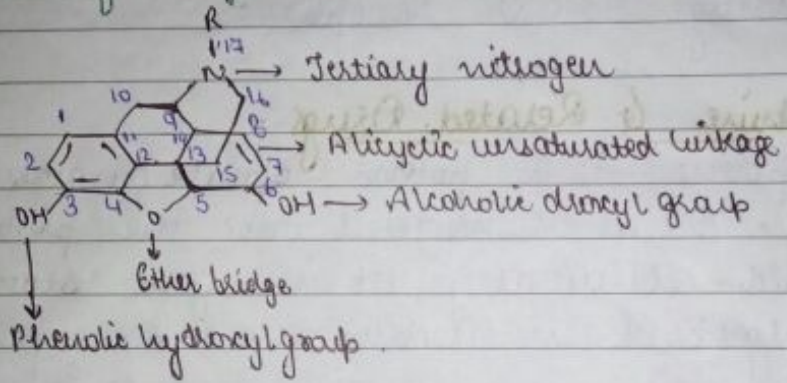 R
17
N → Tertiary nitrogen
10 16
1 9 8
11 14 → Alicyclic unsaturated linkage
2 12 13 15 7
OH 3 4 O 5 6 OH → Alcoholic droxyl group
Ether bridge
Phenolic hydroxyl group.